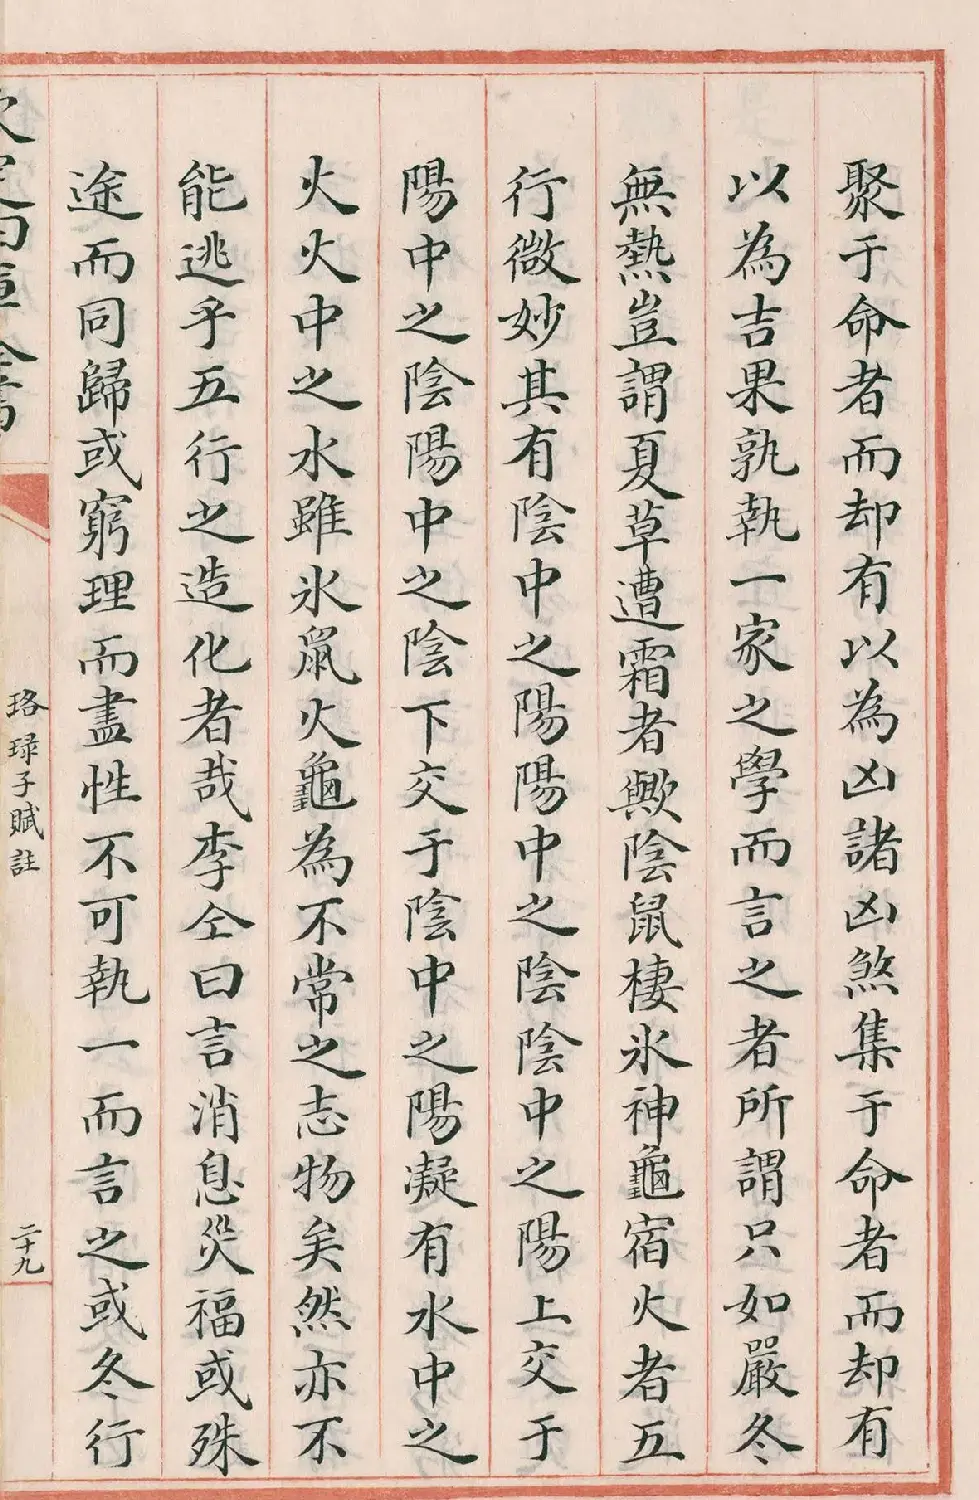 聚于命者而却有以為凶諸凶煞集于命者而却有
以為吉果孰執一家之學而言之者所謂只如嚴冬
無熱豈謂夏草遭霜者歟陰鼠棲氷神龜宿火者五
行微妙其有陰中之陽陽中之陰陰中之陽上交于
陽中之陰陽中之陰下交于陰中之陽凝有水中之
火火中之水雖氷鼠火龜為不常之志物矣然亦不
能逃乎五行之造化者哉李仝曰言消息災福或殊
途而同歸或窮理而盡性不可執一而言之或冬行
欽定四庫全書
珞琭子賦註
二十九